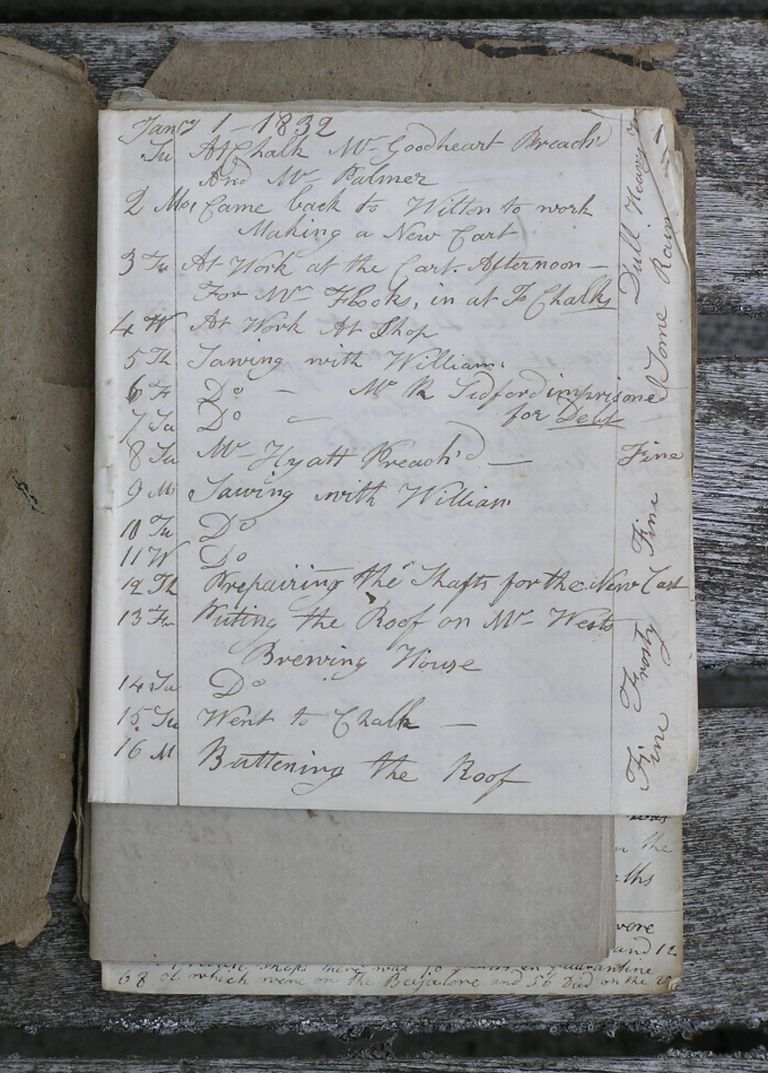 Jany 1 - 1832
Su At Chalk Mr Goodheart Preach'd
And Mr Palmer
2 Mo Came back to Wilton to work
Making a New Cart
3 Tu At Work at the Cart. Afternoon -
For Mr Flook, in at Chalk
4 W At Work At Shop
5 Th Sawing with William.
6 F Do - Mr R Sidford imprisone
7 Sa Do - for Debt
8 Su Mr Hyatt Preach'd -
9 M Sawing with William
10 Tu Do
11 W Do
12 Th Prepairing the Shafts for the New Cart
13 Fr Puting the Roof on Mr Wests
Brewing House
14 Sa Do
15 Su Went to Chalk -
16 M Battening the Roof
Dull Heavy
Some Rain
Fine
Fine
Frosty
Fine
was
n the
ths
wore
and 12
shops there was
Quarantine
68 of which were on the and 56 Died on the